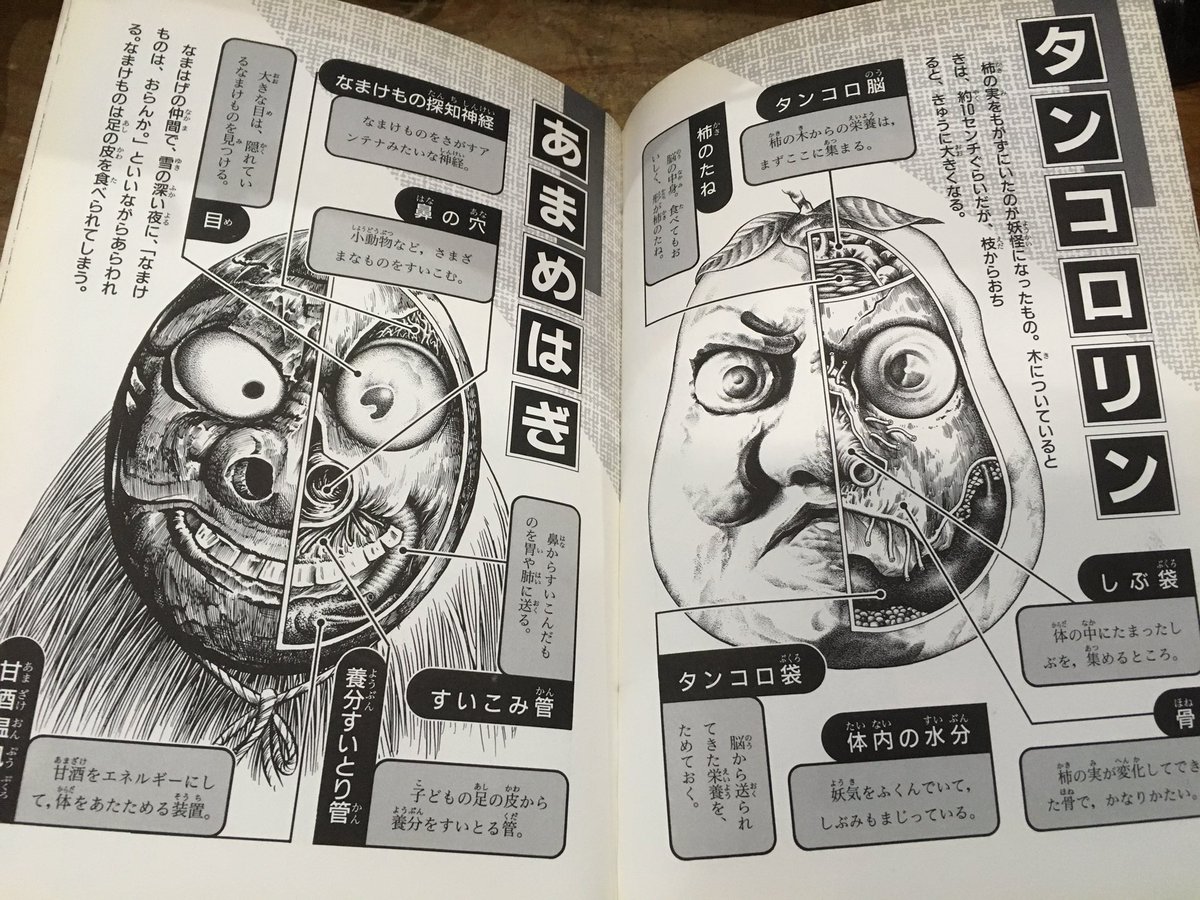 タンコロリン
柿の実をもがずにいたのが妖怪になったもの。木についていると
きは、約10センチぐらいだが、枝からおち
ると、きゅうに大きくなる。
タンコロ脳
柿の木からの栄養は、
まずここに集まる。
柿のたね
脳の中身。食べてもお
いしく、形が柿のたね。
しぶ袋
体の中にたまったし
ぶを，集めるところ。
骨
柿の実が変化してでき
た骨で，かなりかたい。
体内の水分
妖気をふくんでいて，
しぶみもまじっている。
タンコロ袋
脳から送られ
てきた栄養を、
ためておく。
あまめはぎ
なまはげの仲間で、雪の深い夜に、「なまけ
ものは、おらんか。」といいながらあらわれ
る。なまけものは足の皮を食べられてしまう。
なまけもの探知神経
なまけものをさがすア
ンテナみたいな神経。
目
大きな目は、隠れてい
るなまけものを見つける。
鼻の穴
小動物など，さまざ
まなものをすいこむ。
すいこみ管
鼻からすいこんだも
のを胃や肺に送る。
養分すいとり管
子どもの足の皮から
養分をすいとる管。
甘酒温
甘酒をエネルギーにし
て，体をあたためる装置。